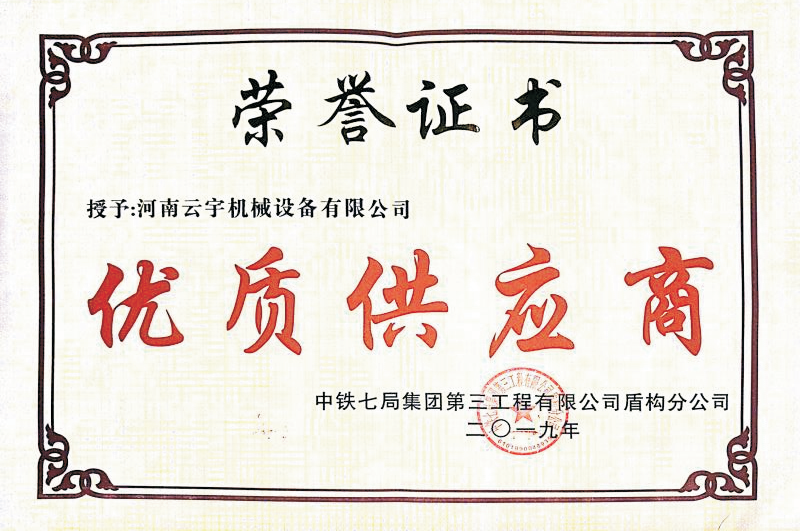 荣誉证书
授予:河南云宇机械设备有限公司
优质供应商
中铁七局集团第三工程有限公司盾构分公司
二〇一九年